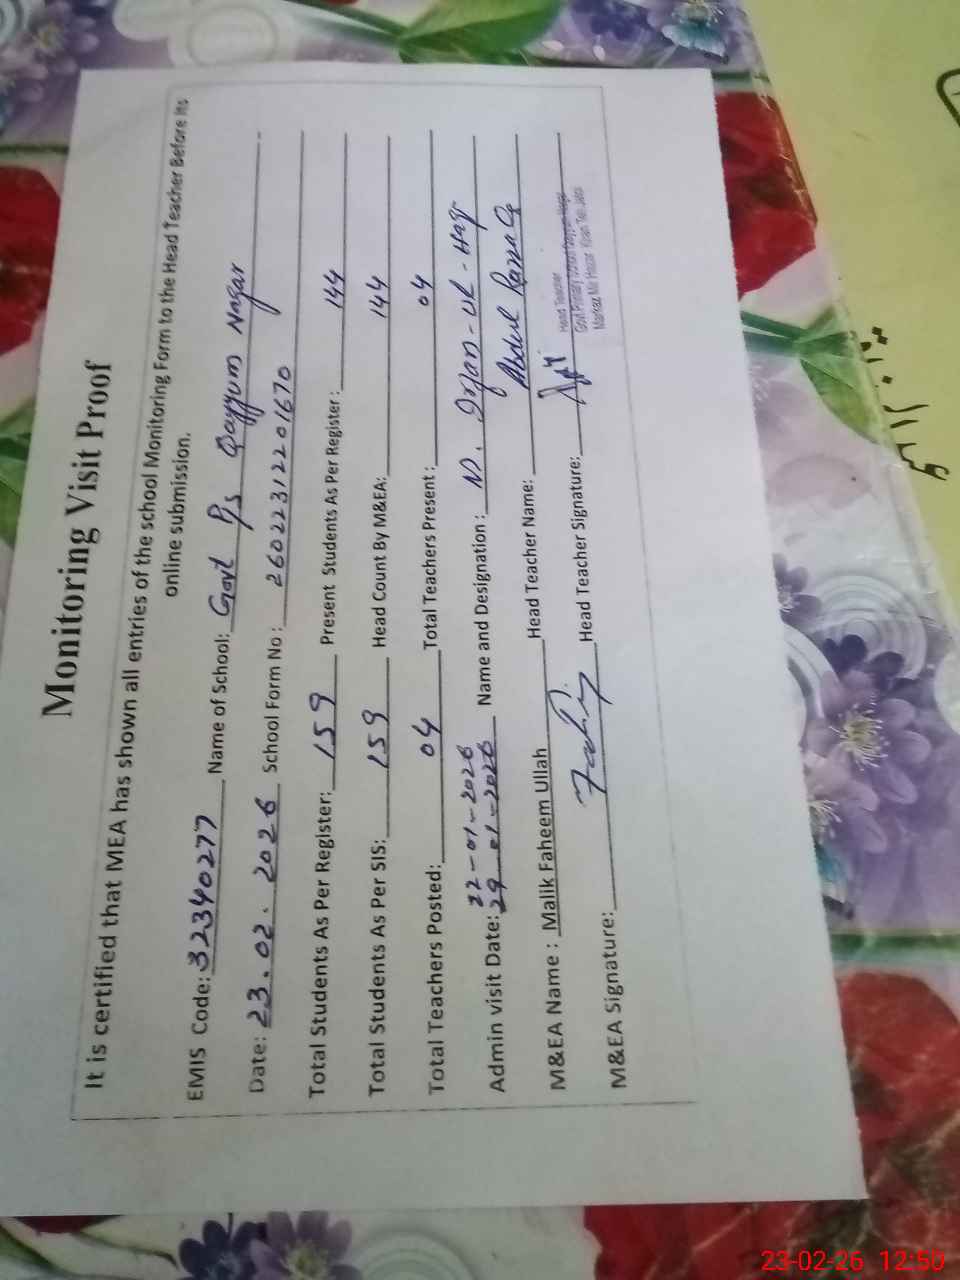 Monitoring Visit Proof
It is certified that MEA has shown all entries of the school Monitoring Form to the Head Teacher Before its
online submission.
EMIS Code: 32340277 Name of School: Govt P/s Qayyum Nagar
Date: 23.02.2026 School Form No: 26022312201670
Total Students As Per Register: 159 Present Students As Per Register: 144
Total Students As Per SIS: 159 Head Count By M&EA: 144
Total Teachers Posted: 04 Total Teachers Present: 04
22-01-2026
Admin visit Date: 29-01-2026 Name and Designation: M. Irfan-Ul-Haq
M&EA Name: Malik Faheem Ullah Head Teacher Name: Abdul Razzaq
M&EA Signature: Head Teacher Signature:
Head Teacher
Govt Primary School Qayyum Nagar
23-02-26 12:50